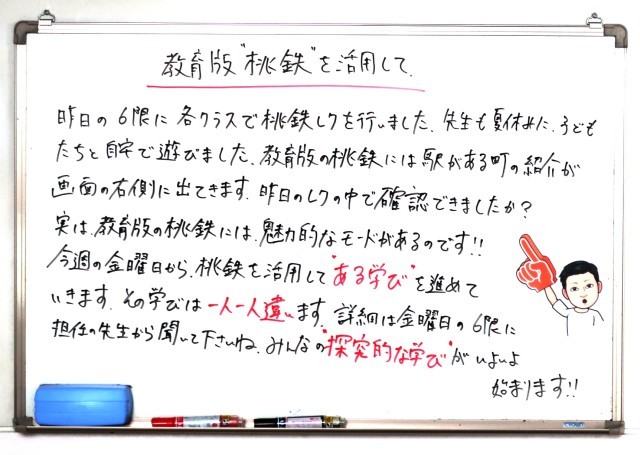 教育版"桃鉄"を活用して、
昨日の6限に各クラスで桃鉄レクを行いました。先生も夏休みに、子ども
たちと自宅で遊びました。教育版の桃鉄には駅がある町の紹介が
画面の右側に出てきます。昨日のレクの中で確認できましたか?
実は、教育版の桃鉄には、魅力的なモードがあるのです!!
今週の金曜日から、桃鉄を活用して"ある学び"を進めて
いきます。その学びは一人一人違います。詳細は金曜日の6限に
担任の先生から聞いて下さいね。みんなの"探究的な学び"がいよいよ
始まります!!